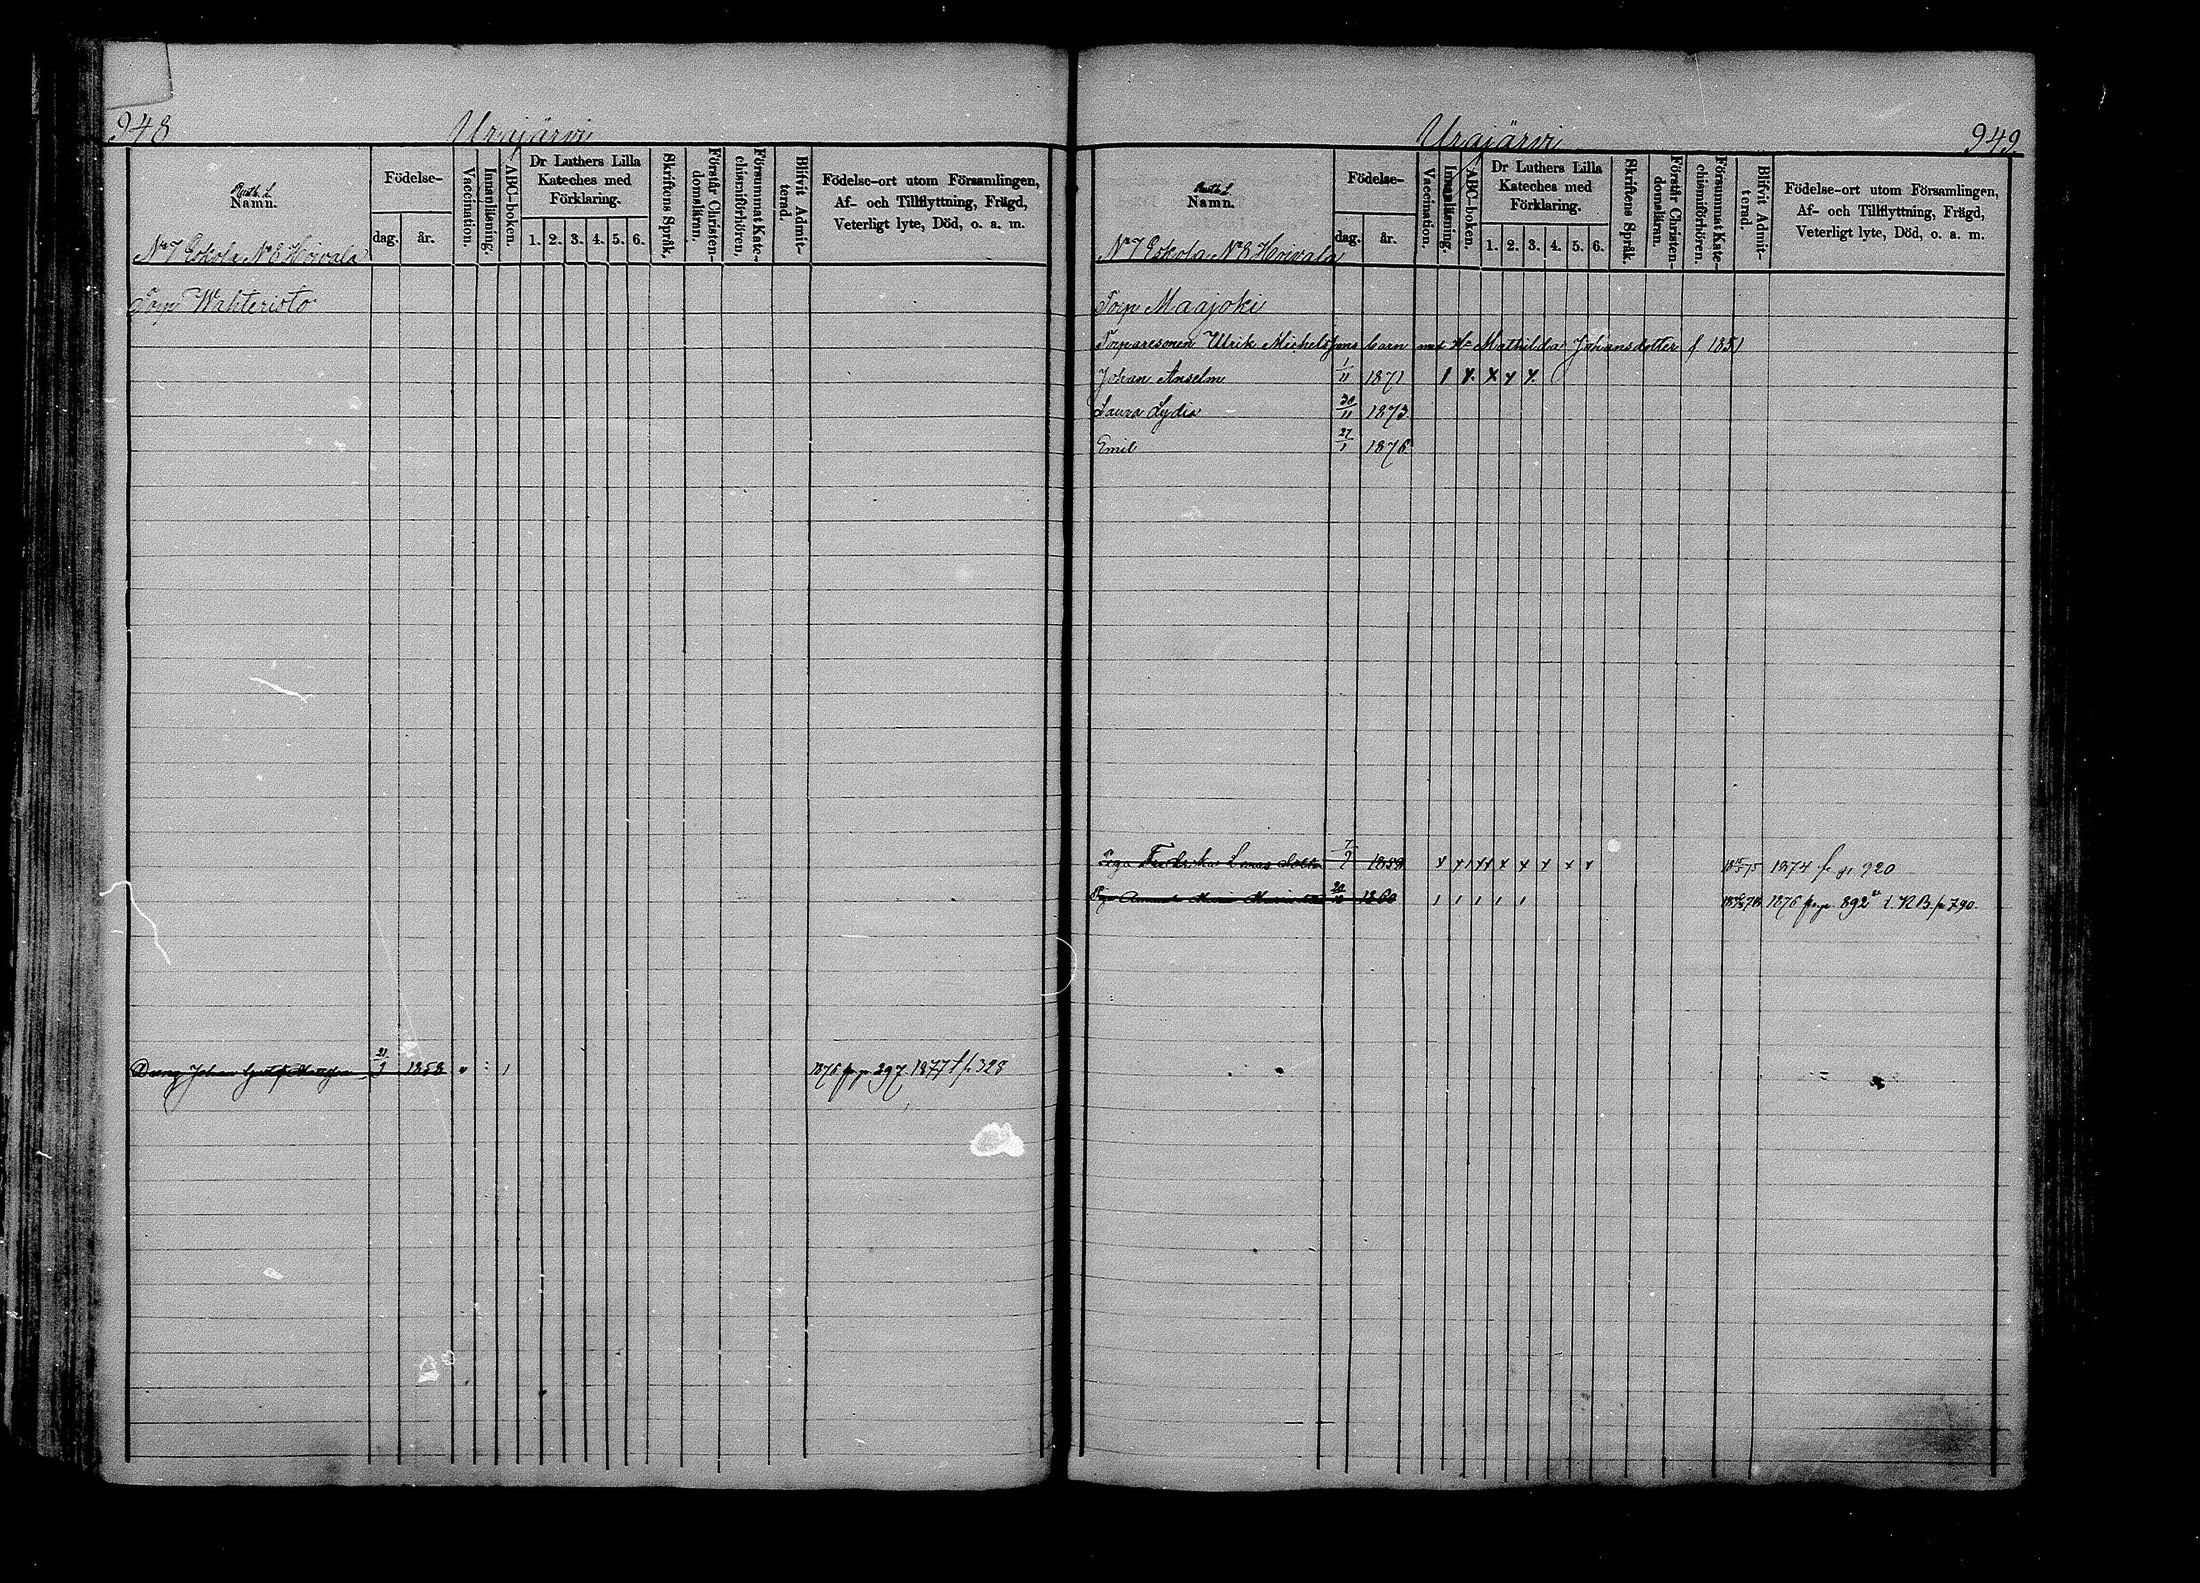 948
Urajärvi
Namn.
Födelse-
dag.
år.
Vaccination.
Innanläsning.
ABC-boken.
Dr Luthers Lilla
Kateches med
Förklaring.
1. 2. 3. 4. 5. 6.
Skriftens Språk.
Förstår Christen-
domsläran.
Försummat Kate-
chismiförhören.
Blifvit Admit-
terad.
Födelse-ort utom Församlingen,
Af- och Tillflyttning, Frägd,
Veterligt lyte, Död, o. a. m.
No 7 Eskola No 8 Hoivala
Torp Wahteristo
Dräng Johan 21/9 1858 1876 fr p. 297, 1877 t p. 328
Urajärvi
949
Namn.
Födelse-
dag.
år.
Vaccination.
Innanläsning.
ABC-boken.
Dr Luthers Lilla
Kateches med
Förklaring.
1. 2. 3. 4. 5. 6.
Skriftens Språk.
Förstår Christen-
domsläran.
Försummat Kate-
chismiförhören.
Blifvit Admit-
terad.
Födelse-ort utom Församlingen,
Af- och Tillflyttning, Frägd,
Veterligt lyte, Död, o. a. m.
No 7 Eskola No 8 Hoivala
Torp Maajoki
Torparesonen Ulrik Michelssons barn med Mathilda Johansdotter f. 1851
Johan Anselm 1/11 1871
Laura Lydia 30/11 1873
Emil 27/1 1876
Piga Fredrika 1858 1874 fr p. 920
Piga 1860 1876 fr p. 892 t. p. 790.